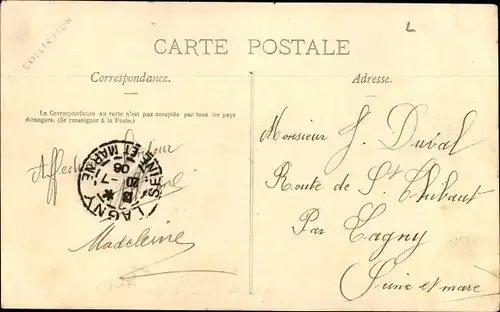 COLLECTION
L
CARTE POSTALE
Correspondance.
La Correspondance au verso n'est pas acceptée par tous les pays
étrangers. (Se renseigner à la Poste.)
Madeleine
LAGNY
SEINE ET MARNE
Adresse.
Monsieur J. Duval
Route de St Thibaut
Par Lagny
Seine et marne